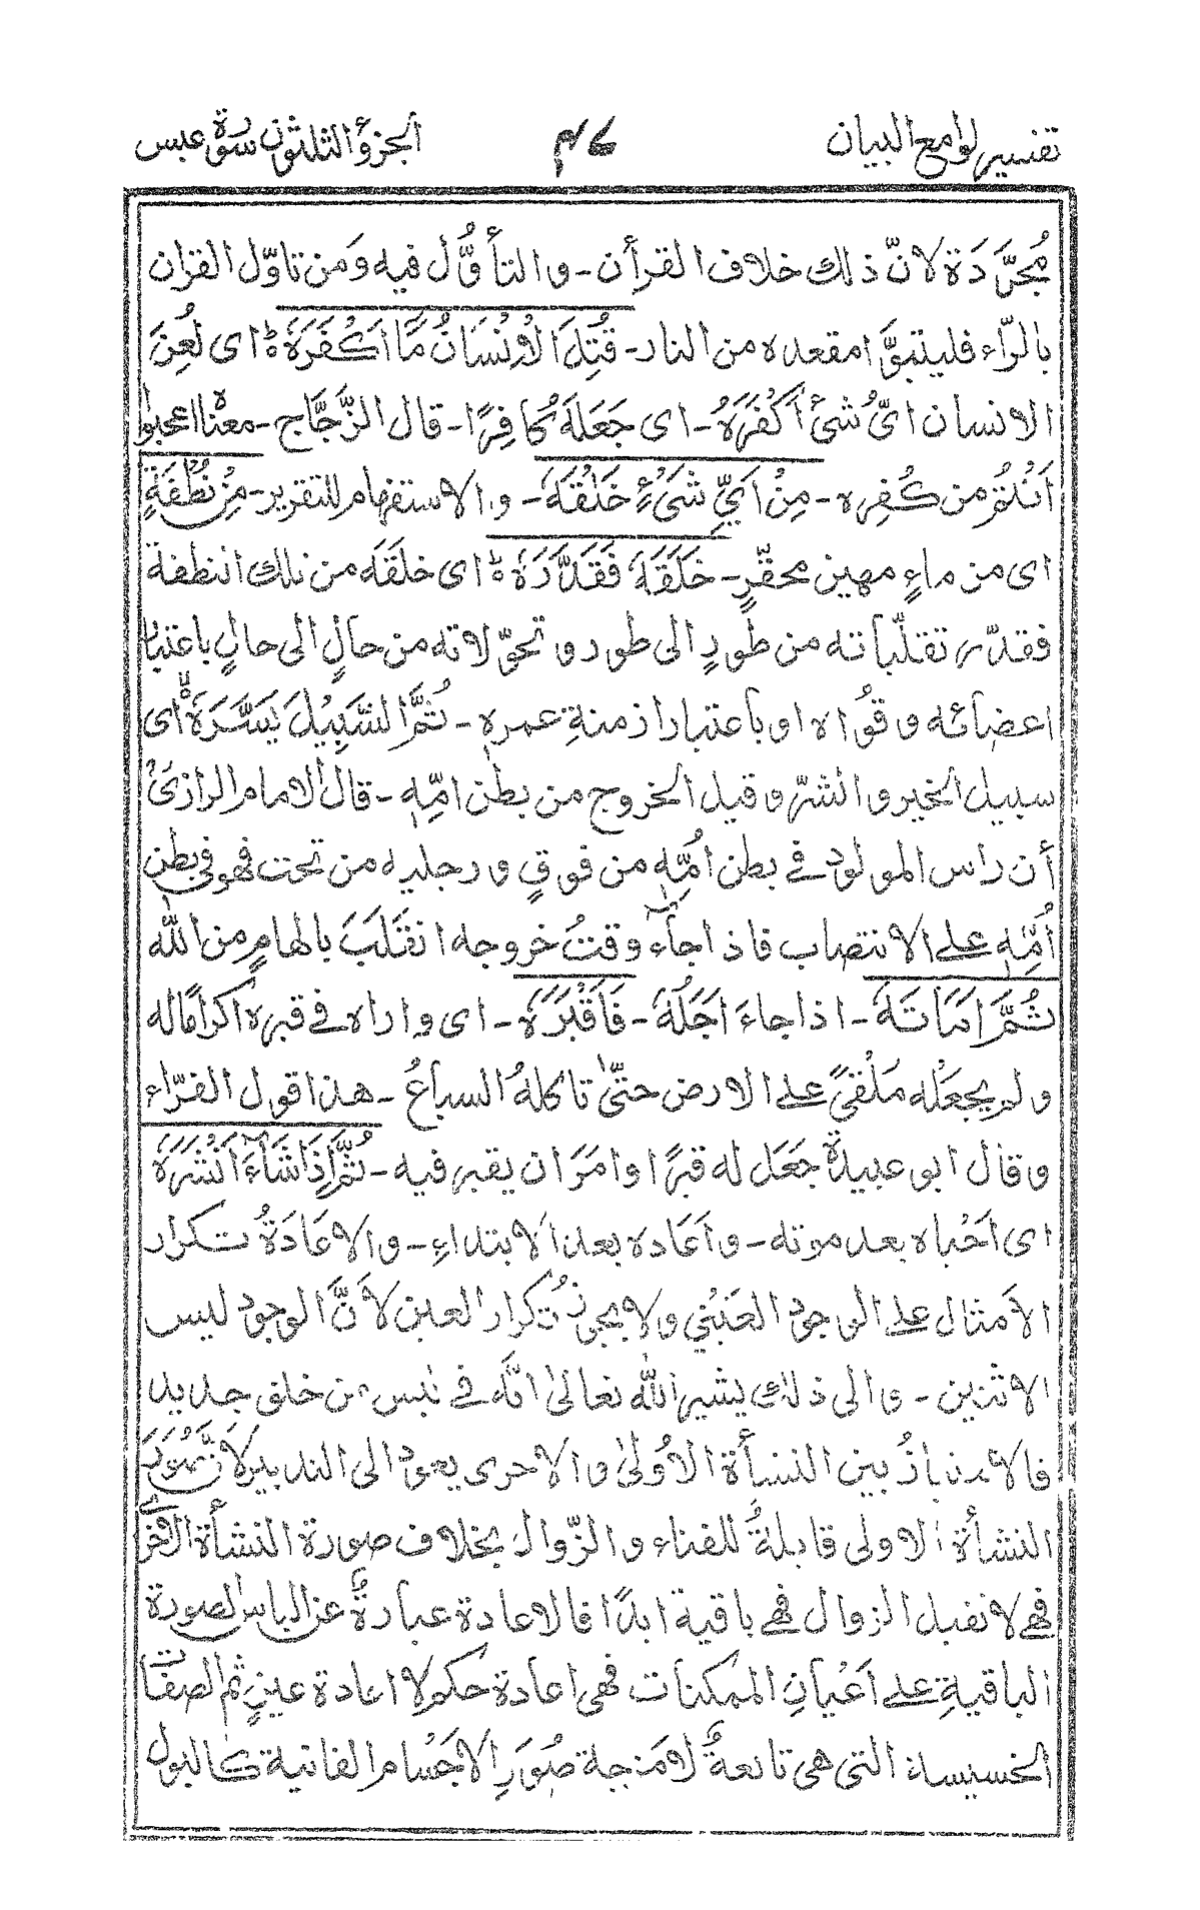 تفسير لوامع البيان ٤٧ الجزؤ الثلثون سورة عبس
مُجرَّدَة لانّ ذلك خلاف القرأن - و التأوُّل فيه وَمن تاوّل القران
بالرّاء فليتبوَّا مقعده من النار - قُتِلَ الْاِنْسَانُ مَّا اَكْفَرَهٗ ؕ اى لُعِنَ
الانسان اىُّ شئ أَكْفَرَهُ - اى جَعَلَهٗ كافِرًا - قال الزَّجَّاج - معناه اعجبوا
اَنْتُم من كُفِره - مِنْ اَيِّ شَىْءٍ خَلَقَهٗ - و الاستفهام للتقرير - مِنْ نُطْفَةٍ
اى من ماءٍ مهين محقّرٍ - خَلَقَهٗ فَقَدَّرَهٗ ؕ اى خلقَه من تلك النطفة
فقدّر تقلّباته من طورٍ الى طور و تحوّلاته من حالٍ الى حالٍ باعتبار
اعضائه و قُواه او باعتبار ازمنةِ عمرهٖ - ثُمَّ السَّبِيْلَ يَسَّرَهٗ اى
سبيل الخير و الشرّ و قيل الخروج من بطن امِّهٖ - قال الامام الرازىُّ
أن راس المولود فے بطن اُمِّهٖ من فوقٍ و رجليه من تحت فهو فى بطن
اُمِّهٖ علے الانتصاب فاذا جآء وقتُ خروجه انقَلَبَ بالهامٍ من الله
ثُمَّ اَمَاتَهٗ - اذا جاءَ اَجَلُهٗ - فَاَقْبَرَهٗ - اى و اراه فے قبره اكرامًا له
و لم يجعَلْه مَلْقىً علے الارض حتّى تاكلهُ السباعُ - هذا قول الفرّاء
و قال ابو عبيدة جَعَل له قبرًا و امَرَ ان يقبر فيه - ثُمَّ اِذَا شَآءَ اَنْشَرَهٗ
اى اَحْياه بعد موته - و اَعَاده بعد الابتداءِ - و الاعَادَةُ تكرار
الأمثال علے الوجود العَيْنِي و لا يجوزُ تكرار العين لأَنَّ الوجود ليس
الاثنين - و الى ذلك يشير الله تعالىٰ انّه فے لبس من خلق جديد
فالامتيازُ بين النشأة الاُولىٰ و الاخرى يعود الى التدبير لاَنَّ صُوَرَ
النشأة الاولى قابلةٌ للفناء و الزّوال بخلاف صورة النشأة الاخرى
فهے لا تقبل الزوال فهے باقية ابدًا فالاعادة عبارةٌ عن الباس الصورة
الباقيةِ علے اَعْيانِ الممكنات فهى اعادة حكم لا اعادة عينٍ ثم الصفات
الخسيسة التى هى تابعةٌ لامزجة صُوَرِ الاجَسام الفانية كالبول